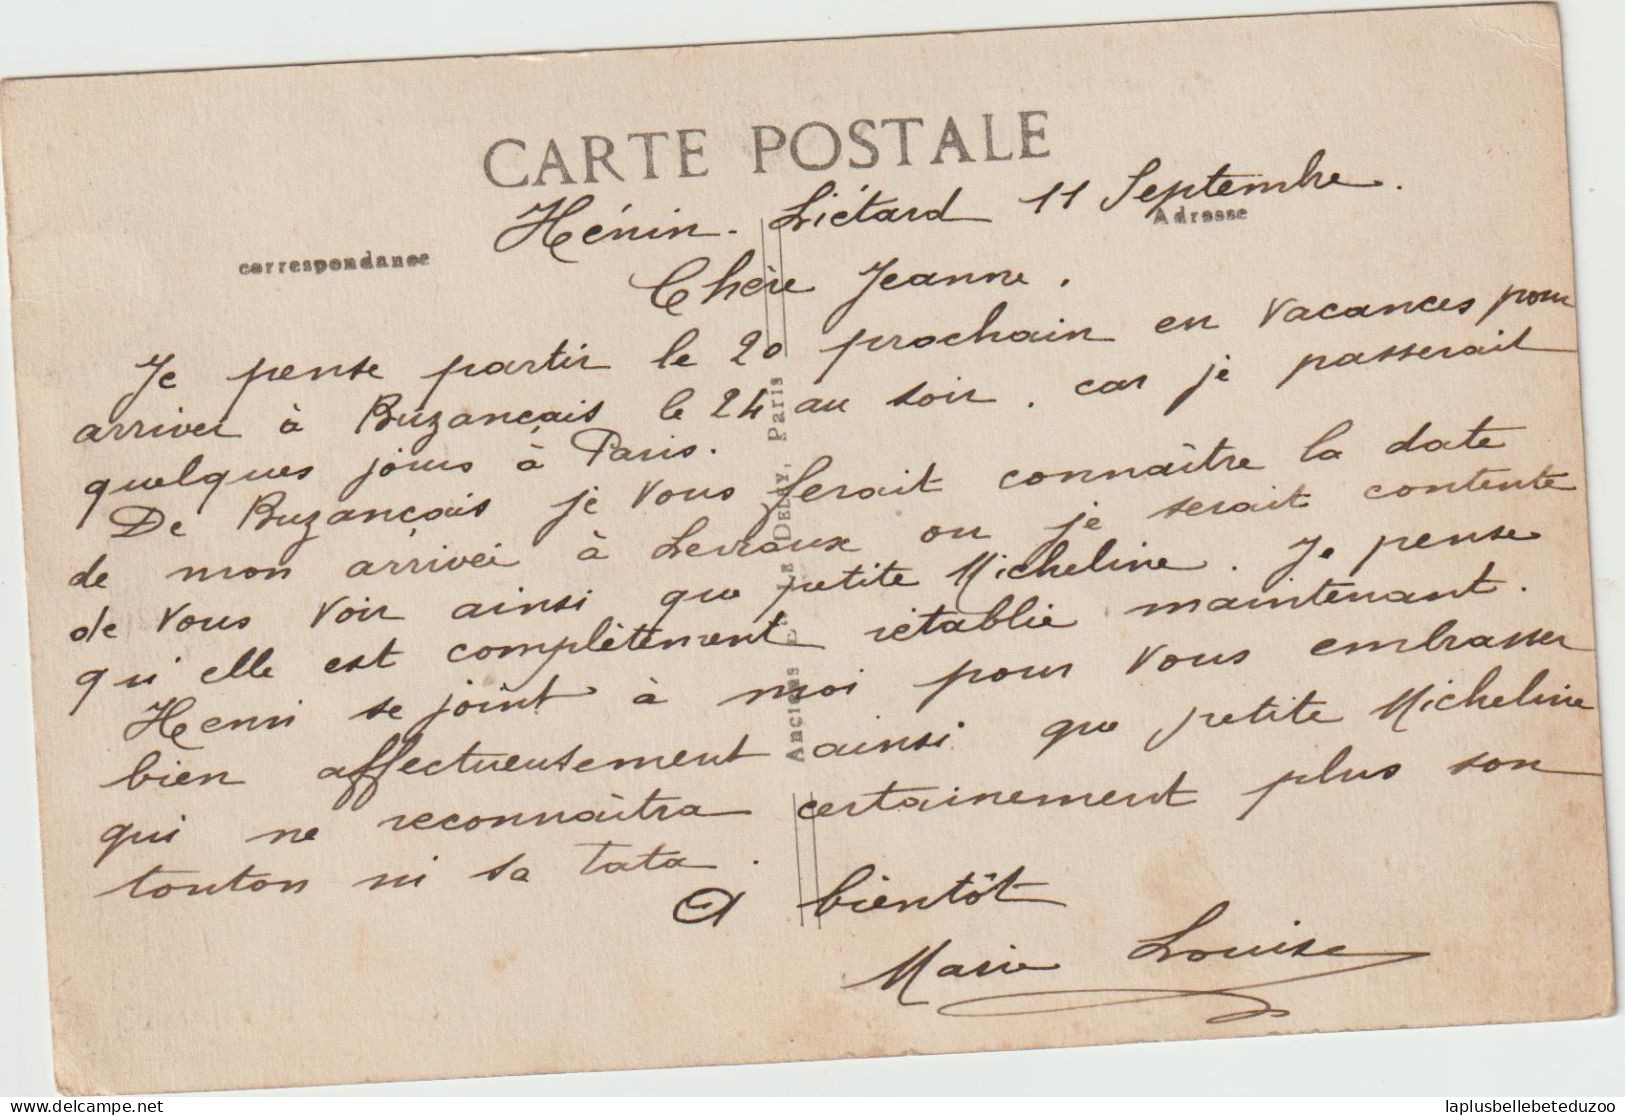 CARTE POSTALE
correspondance
Adresse
Hénin-Liétard 11 Septembre.
Chère Jeanne.
Je pense partir le 20 prochain en vacances pour
arriver à Buzançais le 24 au soir. car je passerait
quelques jours à Paris.
De Buzançais je vous ferait connaître la date
de mon arrivée à Levroux ou je serait contente
de vous voir ainsi que petite Micheline. Je pense
qu'elle est complètement rétablie maintenant.
Henri se joint à moi pour vous embrasser
bien affectueusement ainsi que petite Micheline
qui ne reconnaîtra certainement plus son
tonton ni sa tata.
A bientôt
Marie Louise
Anciens Ets LE DELEY, Paris
laplusbellebeteduzoo